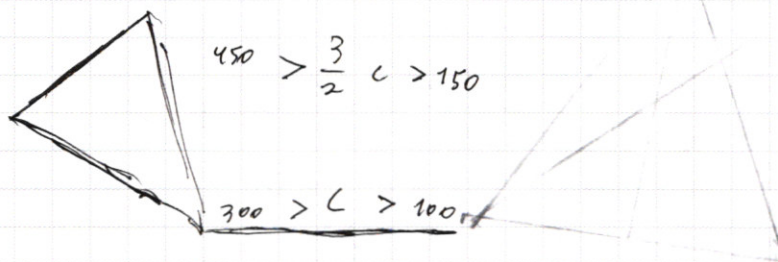 450 > 3/2 c > 150
300 > c > 100